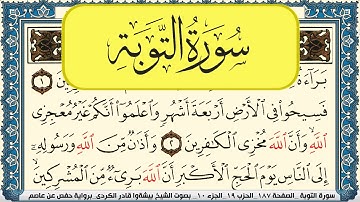 سُورَةُ التَّوْبَةِ
بَرَآءَةٌ
فَسِيحُوا۟ فِى ٱلْأَرْضِ أَرْبَعَةَ أَشْهُرٍ وَٱعْلَمُوٓا۟ أَنَّكُمْ غَيْرُ مُعْجِزِى
ٱللَّهِ ۙ وَأَنَّ ٱللَّهَ مُخْزِى ٱلْكَـٰفِرِينَ ٢ وَأَذَٰنٌ مِّنَ ٱللَّهِ وَرَسُولِهِۦٓ
إِلَى ٱلنَّاسِ يَوْمَ ٱلْحَجِّ ٱلْأَكْبَرِ أَنَّ ٱللَّهَ بَرِىٓءٌ مِّنَ ٱلْمُشْرِكِينَ
سورة التوبة _ الصفحة ١٨٧ _ الحزب ١٩ _ الجزء ١٠ _ بصوت الشيخ بيشةوا قادر الكردي _ برواية حفص عن عاصم